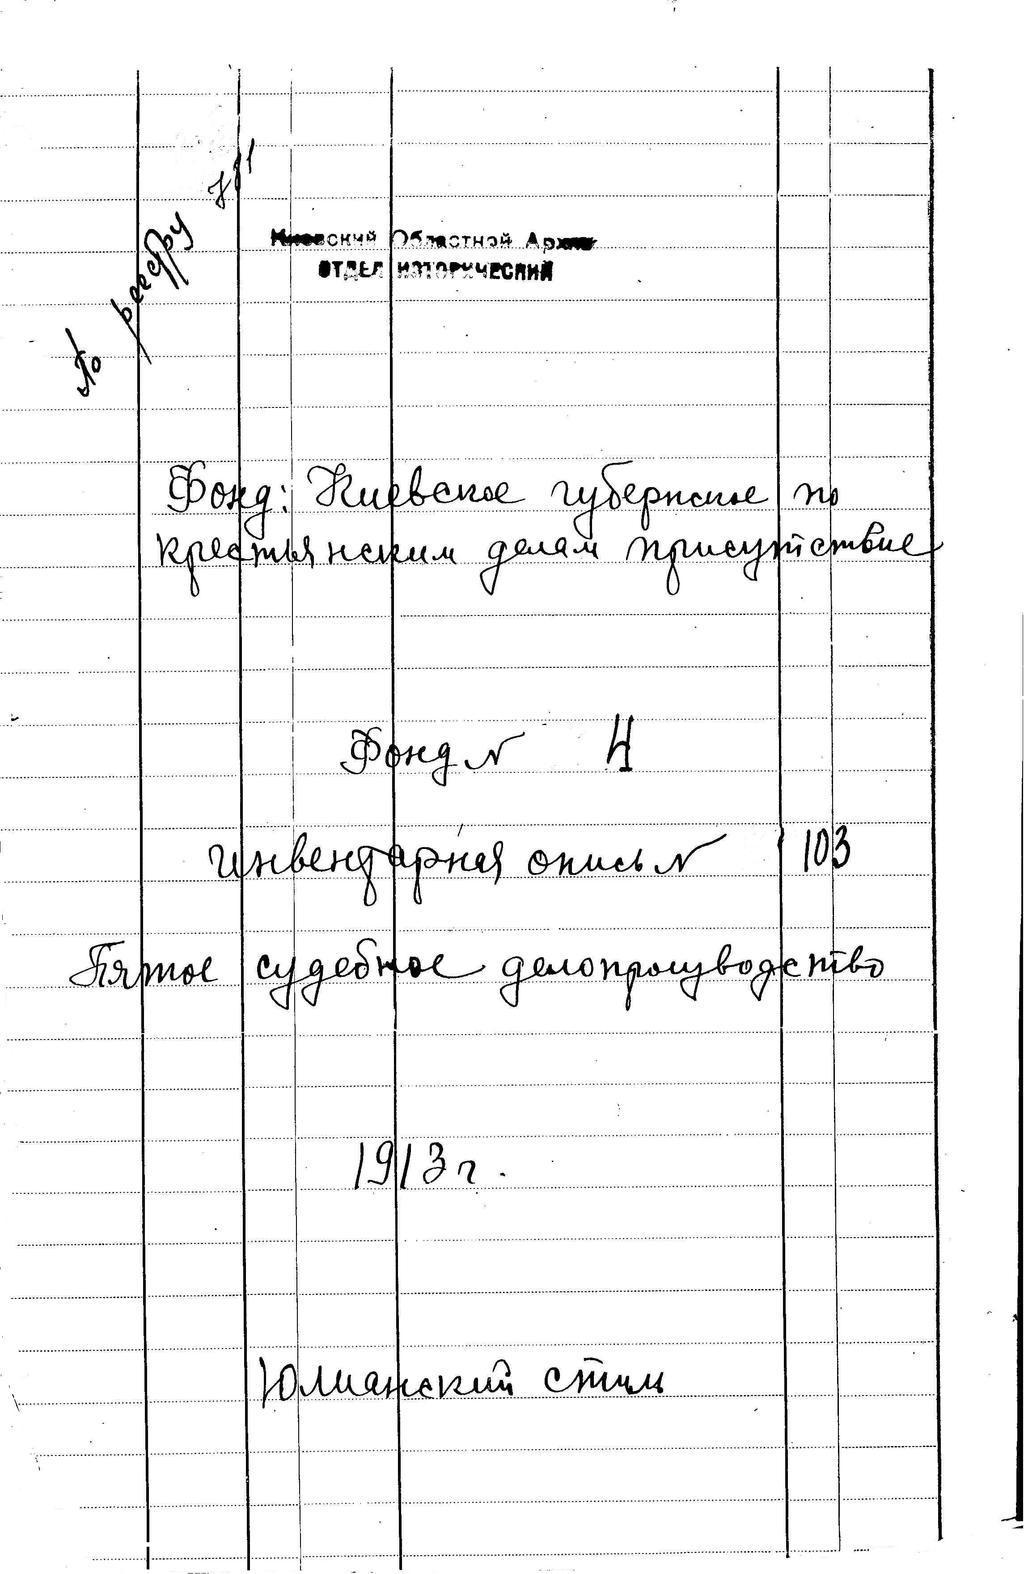 По реестру №1
Киевский Областной Архив
ОТДЕЛ ИСТОРИЧЕСКИЙ
Фонд: Киевское губернское по
крестьянским делам присутствие
Фонд № 4
Инвентарная опись № 103
Пятое судебное делопроизводство
1913 г.
Юлианский стиль